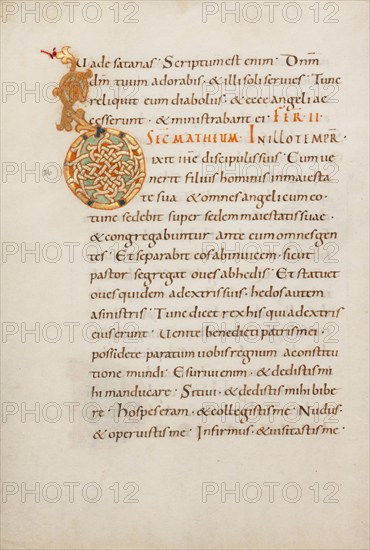 Uade satanas · Scriptum est enim · Dnm
dm tuum adorabis · & illi soli seruies · Tunc
reliquit eum diabolus · & ecce angeli ac
cesserunt · & ministrabant ei · FER · II ·
SEC MATHEUM · IN ILLO TEMPR ·
Dixit ihc discipulis suis · Cum ue
nerit filius hominis in maiesta
te sua · & omnes angeli cum eo ·
tunc sedebit super sedem maiestatis suae ·
& congregabuntur ante eum omnes gen
tes · Et separabit eos abinuicem · sicut
pastor segregat oues ab hedis · Et statuet
oues quidem a dextris suis · hedos autem
a sinistris · Tunc dicet rex his qui a dextris
eius erunt · Uenite benedicti patris mei ·
possidete paratum uobis regnum a constitu
tione mundi · Esuriui enim · & dedistis mi
hi manducare · Sitiui · & dedistis mihi bibe
re · Hospes eram · & collegistis me · Nudus ·
& operuistis me · Infirmus · & uisitastis me ·
PHOTO 12